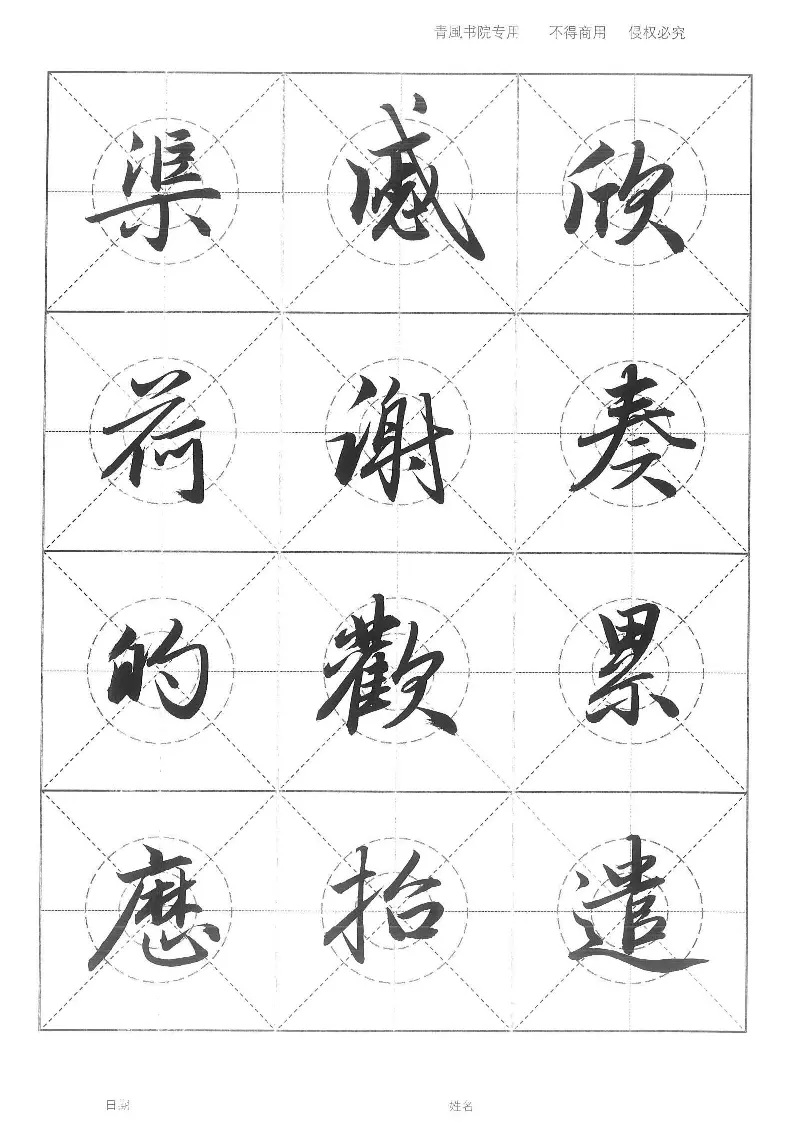 青風书院专用 不得商用 侵权必究
欣奏累遣
慼謝歡招
渠荷的歷
日期 姓名